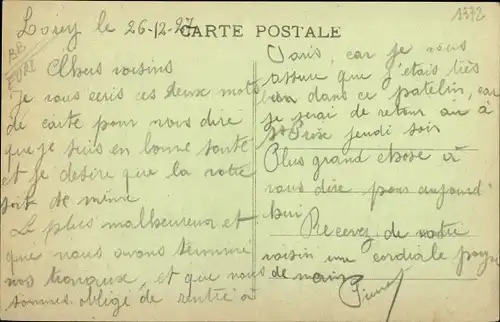 le 26-12-27
CARTE POSTALE
1372
BB
EURE
Chers voisins
Je vous ecris ces deux mots
de carte pour vous dire
que je suis en bonne santé
et je desire que la votre
soit de même
Le plus malheureux et
que nous avons terminé
nos travaux, et que nous
sommes obligé de rentré à
Paris, car je vous
assure que j'etais très
bien dans ce patelin, car
je serai de retour au à
jeudi soir
Plus grand chose à
vous dire pour aujourd
hui
Recevez de votre
voisin une cordiale poignée
de main
Pierre